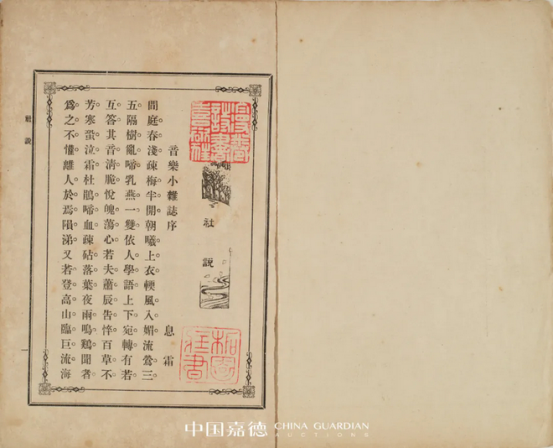 社說
音樂小雜誌序
息霜
閒庭春淺疎梅半開朝曦上衣輭風入媚流鶯三
五隔樹亂啼乳燕一雙依人學語上下宛轉有若
互答其音清脆悅魄蕩心若夫蕭辰告悴百草不
芳寒蛩泣霜杜鵑啼血疎砧落葉夜雨鳴鷄聞者
爲之不懽離人於焉隕涕又若登高山臨巨流海
社說
一
中国嘉德 CHINA GUARDIAN
AUCTIONS